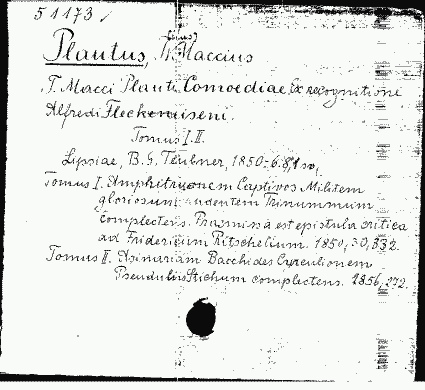 51173 /
Plautus, T. Maccius
(Titus)
T. Macci Plauti Comoediae. Ex recognitione
Alfredi Fleckeiseni.
Tomus I. II.
Lipsiae, B. G. Teubner, 1850-
Tomus I. Amphitruonem Captivos Militem
gloriosum Rudentem Trinummum
complectens. Praemissa est epistula critica
ad Fridericum Ritschelium. 1850, 30, 332.
Tomus II. Asinariam Bacchides Curculionem
Pseudulus Stichum complectens. 1856, 272.